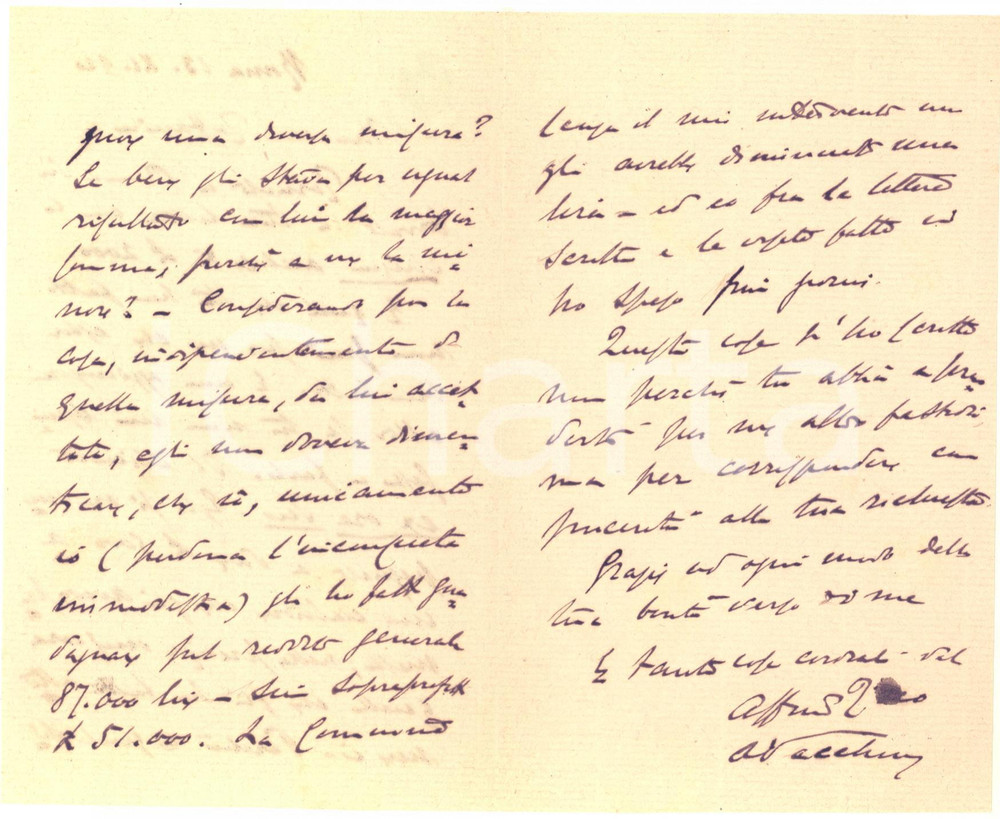 una diversa misura?
Se bene gli stava per egual
risultato con lui la maggior
somma, perché a me la mi-
nore? – Considerando poi la
cosa, indipendentemente da
quella misura, da lui accet-
tata, egli non doveva dimen-
ticare, che io, unicamente
io (perdona l'incomposta
immodestia) gli ho fatto gua-
dagnare sul reddito generale
87.000 lire – sui sopraprofitti
£ 51.000. La Comm
senza il mio intervento non
gli avrebbe diminuito una
lira – ed io fra le lettere
scritte e le visite fatte ci
ho speso giorni.
Questa cosa t'ho scritto
non perché tu abbia a pren-
derti per me altro fastidio,
ma per corrispondere con
sincerità alla tua richiesta.
Grazie ad ogni modo della
tua bontà verso di me
E tante cose cordiali dal
Aff